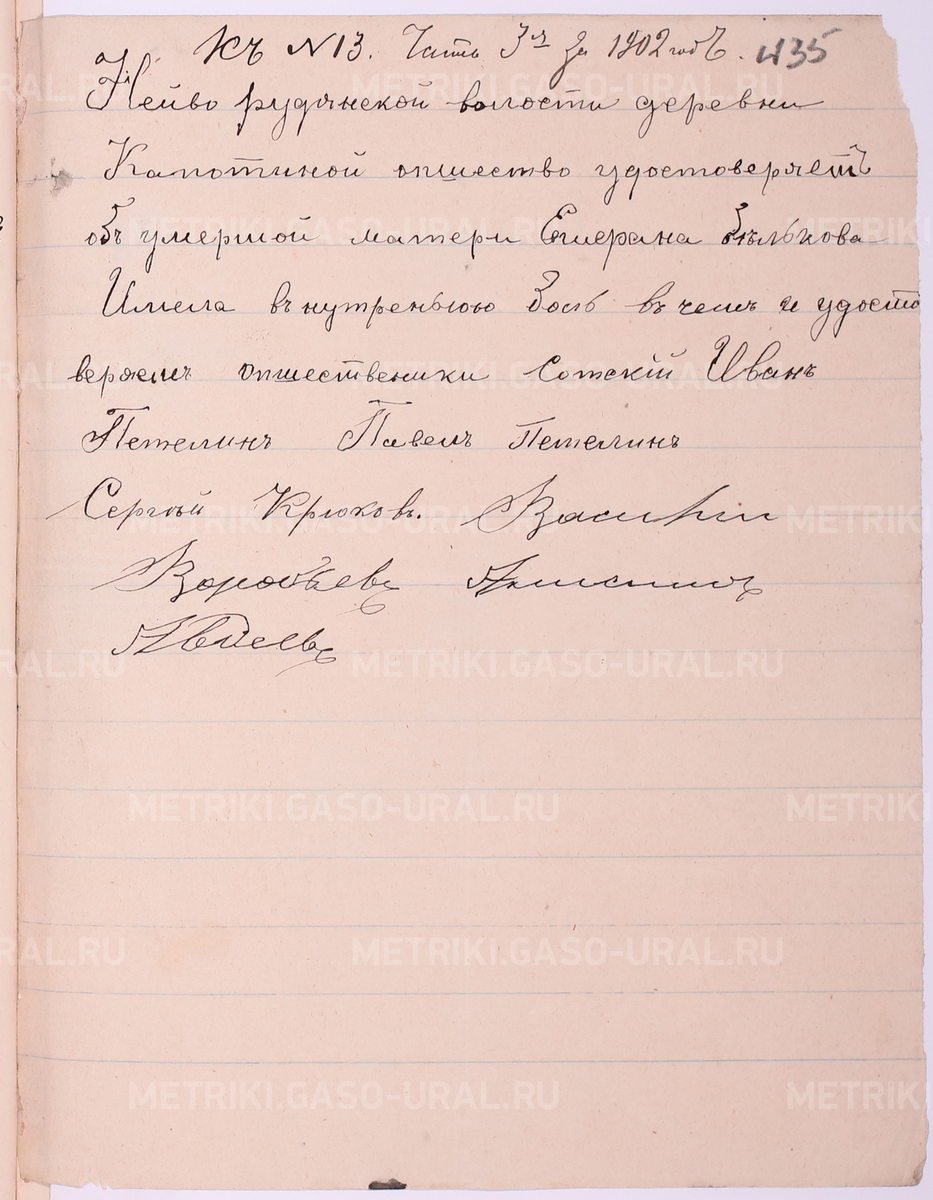 Къ N 13. Часть 3я за 1902 годъ. 435
Нейво рудянской волости деревни
Капотиной опшество удостоверяетъ
объ умершой матери Емерана Бѣлькова
Имела внутреньюю боль въ чемъ и удосто
веряемъ опшественики Сотскій Иванъ
Петелинъ Павелъ Петелинъ
Сергѣй Крюковъ. Василий
Воробьевъ Анисимъ
Авдеевъ
METRIKI.GASO-URAL.RU